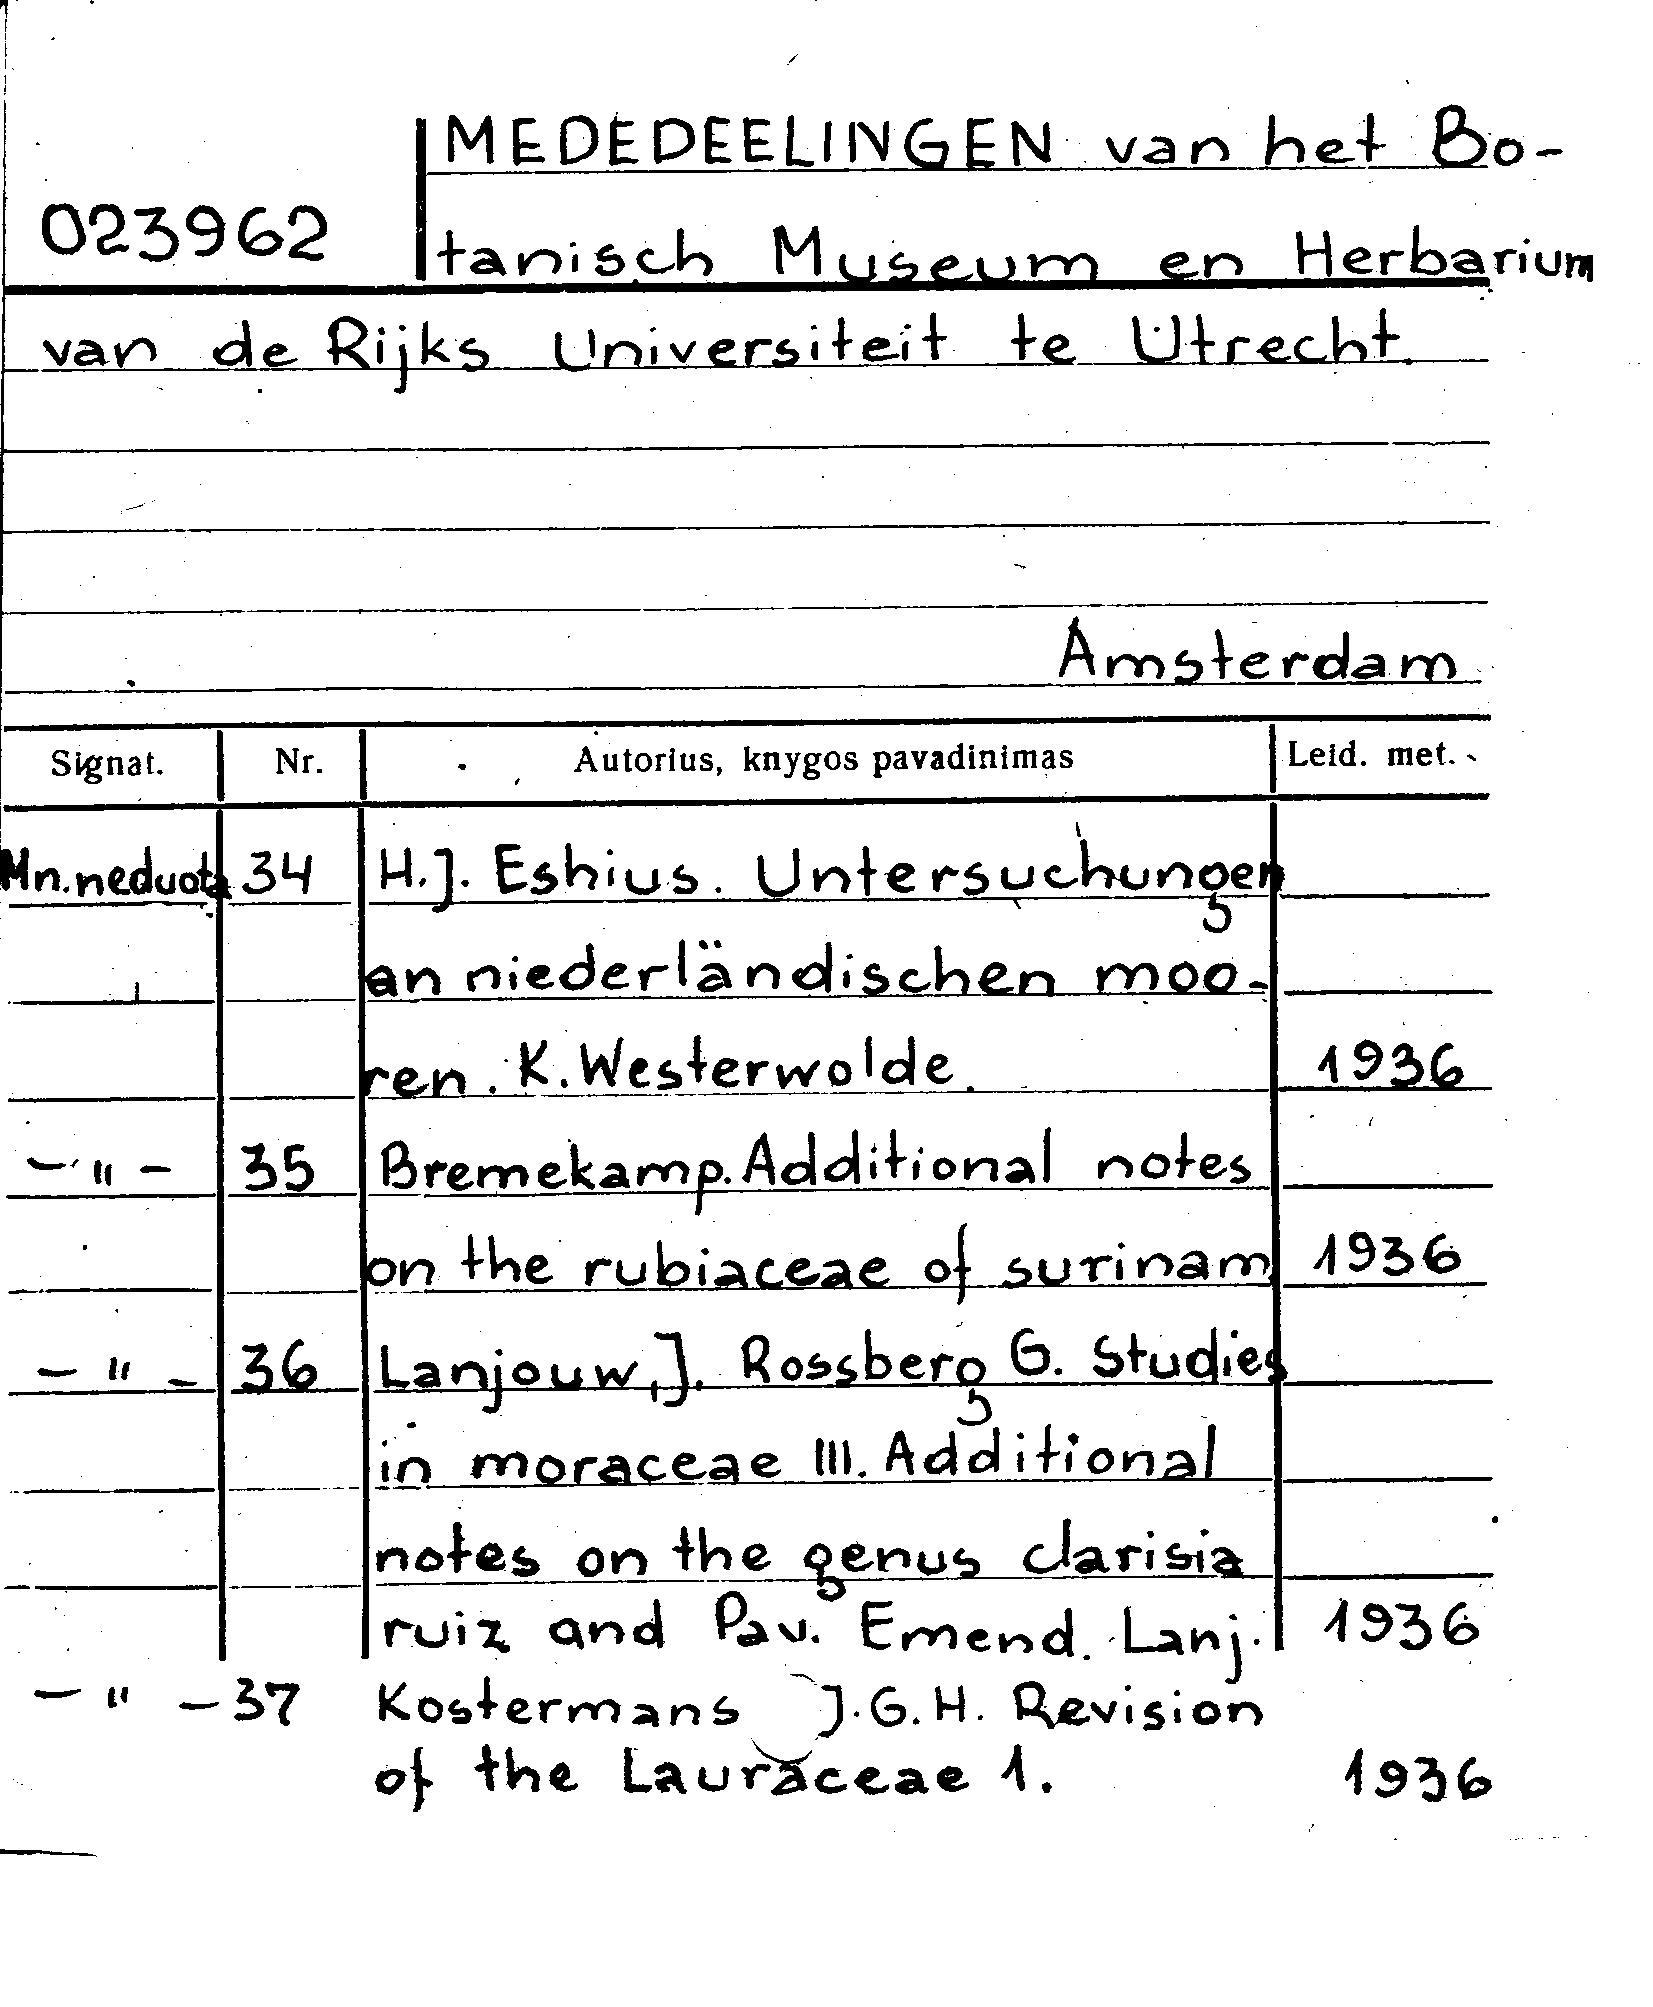 MEDEDEELINGEN van het Bo-
023962
tanisch Museum en Herbarium
van de Rijks Universiteit te Utrecht
Amsterdam
Signat. Nr. Autorius, knygos pavadinimas Leid. met.
Mn.neduota 34 H.J. Eshius. Untersuchungen
an niederländischen moo-
ren. K. Westerwolde. 1936
– " – 35 Bremekamp. Additional notes
on the rubiaceae of surinam 1936
– " – 36 Lanjouw, J. Rossberg G. Studies
in moraceae III. Additional
notes on the genus clarisia
ruiz and Pav. Emend. Lanj. 1936
– " – 37 Kostermans J.G.H. Revision
of the Lauraceae 1. 1936